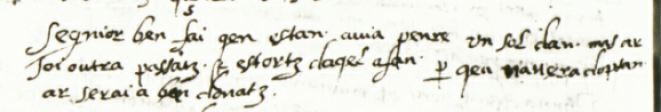 Segnior ben fai qen estan. auia penre un sol dan. mas ar
soi outra passatz. estortz daqel afan. per qeu
ar serai a ben donatz.